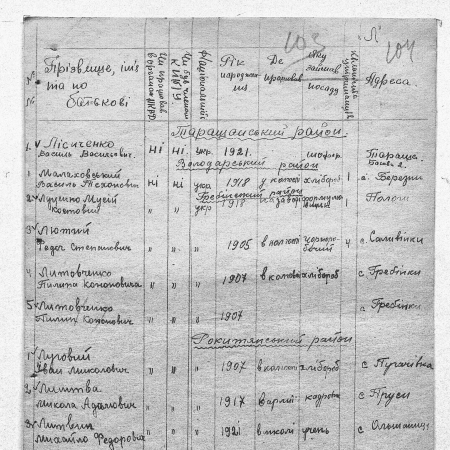 „Л"
103 104
№ Прізвище, ім'я та по батькові Чи працював в органах НКВД Чи був членом КП/б/У Національність Рік народження Де працював яку займав посаду Адреса.
Таращанський район.
1. Лісиченко Василь Васильович. Ні Ні. укр. 1921. шофер. Тараща
Володарський район
1 Малаховський Василь Тихонович ні ні укр 1918 у колг. хлібороб 1 с. Березни
Гребінський район
2 Лущино Мусій Костович " " укр 1918 на заводі 1 Пологи
3 Лютий Федор Степанович " " " 1905 в колгоспі чорноробочий 4 с. Саливінки
4 Литовченко Пилип Кононович " " " 1907 в колгоспі хлібороб с. Гребінки
5 Литовченко Пилип Кононович " " " 1907 с Гребінки
Рокитянський район
1 Луговий Іван Миколович " " " 1907 в колгосп хлібороб с Пугачівка
2 Литва Микола Адамович " " " 1917 в армії кадрова с Пруси
3 Литвин Михайло Федорович " " " 1921 в школі учень с Ольшаниця